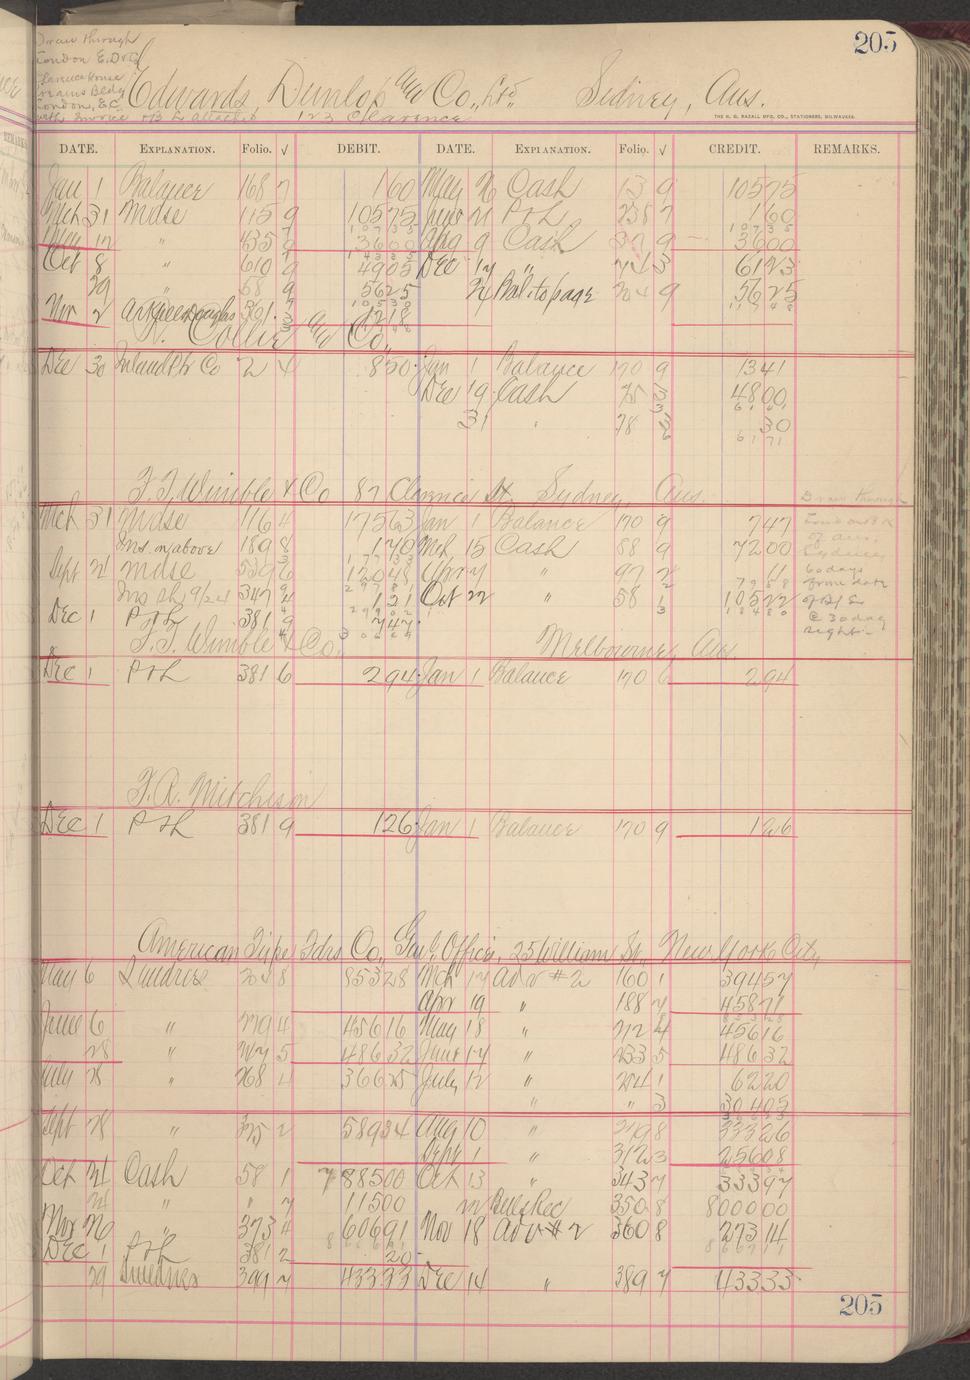 205
Draw through
London E.D & Co
Clarence House
London, E.C.
Edwards, Dunlop and Co., Ltd., Sidney, Aus.
with Invoice & B L attached 123 Clarence
THE H. G. RAZALL MFG. CO., STATIONERS, MILWAUKEE.
DATE. EXPLANATION. Folio. √ DEBIT. DATE. EXPLANATION. Folio. √ CREDIT. REMARKS.
Jan 1 Balance 168 7 1 60 May 26 Cash 13 9 105 75
Mch 31 Mdse 115 9 105 75 June 21 P & L 238 7 1 60
May 12 " 435 9 36 00 Aug 9 Cash 9 36 00
Oct 8 " 610 9 49 05 Dec 14 " 74 3 61 23
29 " 58 9 56 25 24 Bal to page 244 9 56 25
Nov 2 361 3 12 18
Collie and Co.
Dec 30 Inland Ptr Co 2 4 8 50 Jan 1 Balance 170 9 13 41
Dec 19 Cash 75 3 48 00
31 " 78 30
61 71
F. T. Wimble & Co 87 Clarence St. Sydney, Aus.
Draw through
Mch 31 Mdse 116 4 175 63 Jan 1 Balance 170 9 7 47
Ins. on above 189 8 1 70 Mch 15 Cash 88 9 72 00
of Aus.
Sydney
Sept 21 Mdse 539 6 120 48 Apr 7 " 97 2 11
60 days
from date
Ins Sh 9/24 347 1 21 Oct 22 " 58 1 105 22
of B/L &
Dec 1 P & L 381 9 7 47
@ 30 day
sight.
F. T. Wimble & Co., Melbourne, Aus.
Dec 1 P & L 381 6 2 94 Jan 1 Balance 170 6 2 94
F. A. Mitcheson
Dec 1 P & L 381 9 1 26 Jan 1 Balance 170 9 1 26
American Type Fdrs Co., Gen'l Office, 25 William St., New York City
May 6 Sundries 208 8 853 28 Mch 17 Adv #2 160 1 394 57
Apr 19 " 188 7 458 71
June 6 " 279 4 456 16 May 18 " 212 4 456 16
28 " 5 486 32 June 17 " 233 5 486 32
July 28 " 268 4 366 25 July 12 " 241 1 62 20
" " 3 304 05
Sept 28 " 325 2 589 34 Aug 10 " 8 333 26
Sept 1 " 312 3 256 08
Oct 21 Cash 58 1 7885 00 Oct 13 " 343 7 333 97
21 " " 7 115 00 Bills Rec 350 8 8000 00
Nov 26 " 373 4 606 91 Nov 18 Adv #2 360 8 273 14
Dec 1 P & L 381 2 20
29 Sundries 399 7 433 33 Dec 14 " 389 7 433 33
205